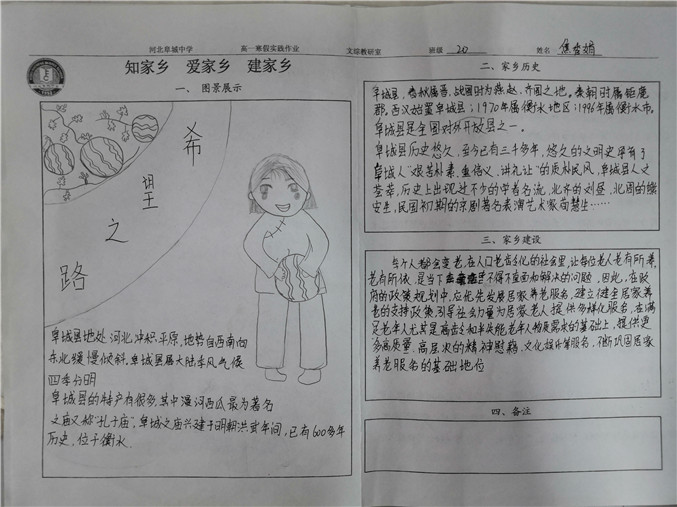 河北阜城中学 高一寒假实践作业 文综教研室 班级 20 姓名 焦
知家乡 爱家乡 建家乡
一、图景展示
希
望
之
路
阜城县地处河北冲积平原,地势自西南向
东北缓慢倾斜,阜城县属大陆季风气候
四季分明
阜城县的特产有很多其中漫河西瓜最为著名
文庙又称“孔子庙”,阜城文庙兴建于明朝洪武年间,已有600多年
历史,位于衡水
二、家乡历史
阜城县,春秋属晋,战国时为燕赵、齐国之地。秦朝时属钜鹿
郡。西汉始置阜城县;1970年属衡水地区;1996年属衡水市。
阜城县是全国对外开放县之一。
阜城县历史悠久,至今已有三千多年,悠久的文明史孕育了
阜城人“艰苦朴素、重信义,讲礼让”的质朴民风,阜城县人文
荟萃,历史上出现过不少的学者名流,北齐的刘昼,北周的熊
安生,民国初期的京剧著名表演艺术家荀慧生……
三、家乡建设
每个人都会变老,在人口老龄化的社会里,让每位老人老有所养,
老有所依,是当下不得不直面和解决的问题,因此,在政
府的政策规划中,应优先发展居家养老服务,建立健全居家养
老的支持政策,引导社会力量为居家老人提供多样化服务,在满
足老年人尤其是高龄和半失能老年人物质需求的基础上,提供更
多高质量、高层次的精神慰藉、文化娱乐等服务,不断巩固居家
养老服务的基础地位
四、备注